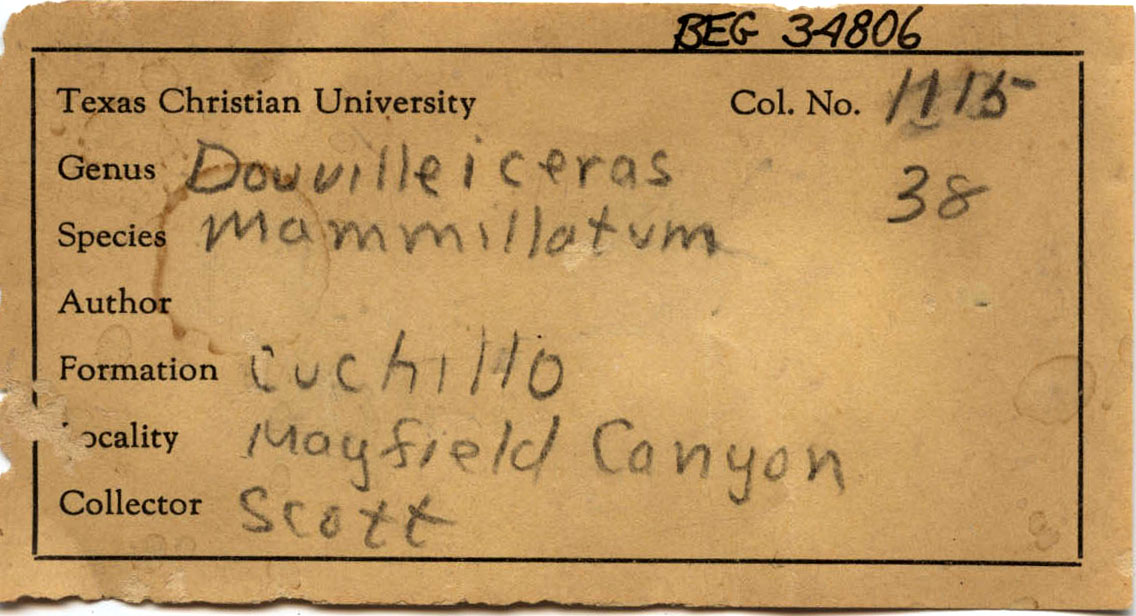 BEG 34806
Texas Christian University Col. No. 1115
Genus Douvilleiceras 38
Species Mammillatum
Author
Formation Cuchillo
Locality Mayfield Canyon
Collector Scott